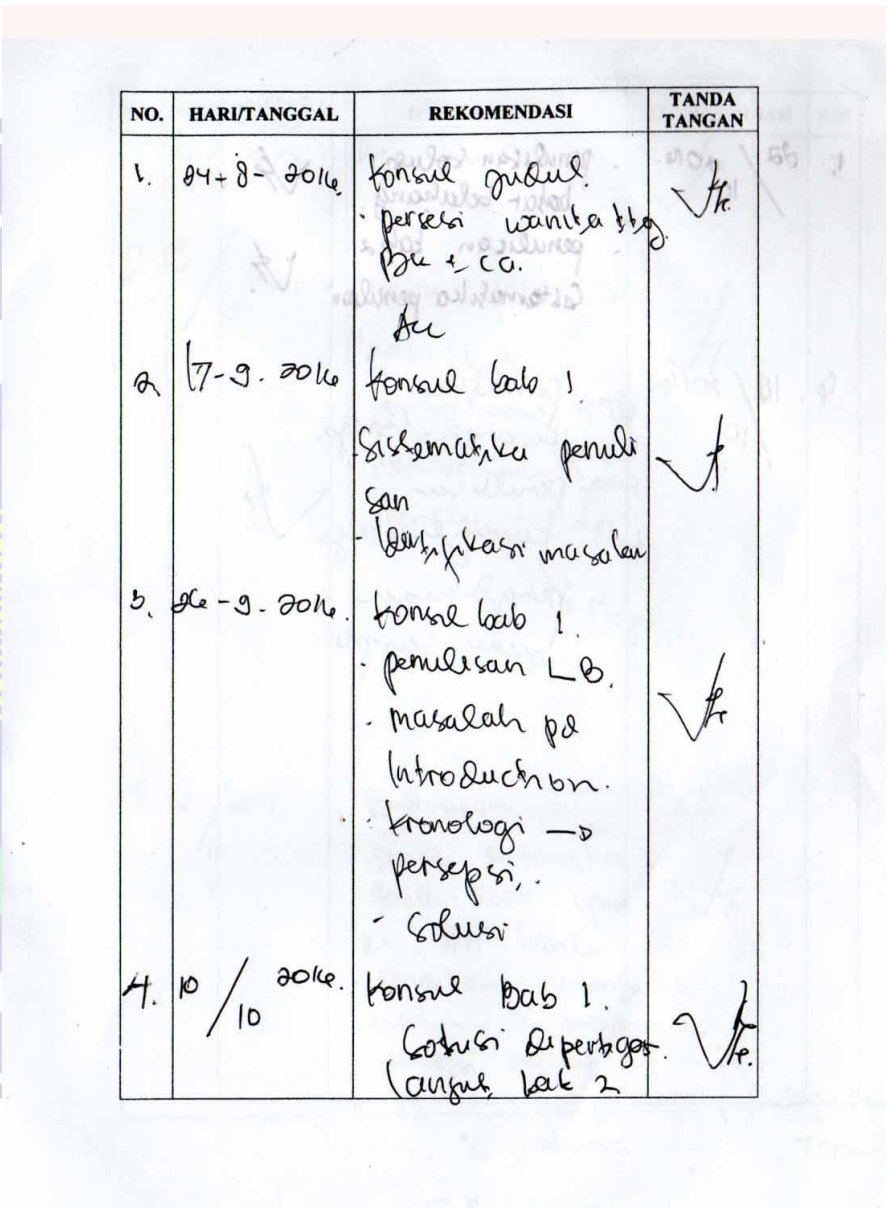 NO. HARI/TANGGAL REKOMENDASI TANDA TANGAN
1. 24 - 8 - 2016 Konsul judul.
- persepsi wanita ttg
Acc
2. 17-9-2016 Konsul bab 1.
- Sistematika penuli
san
- Identifikasi masalah
3. 26-9-2016. Konsul bab 1.
- penulisan LB.
- masalah pd
Introduction.
- Kronologi →
persepsi.
- Solusi
4. 10/10 2016. Konsul Bab 1.
Solusi dipertegas.
Lanjut bab 2